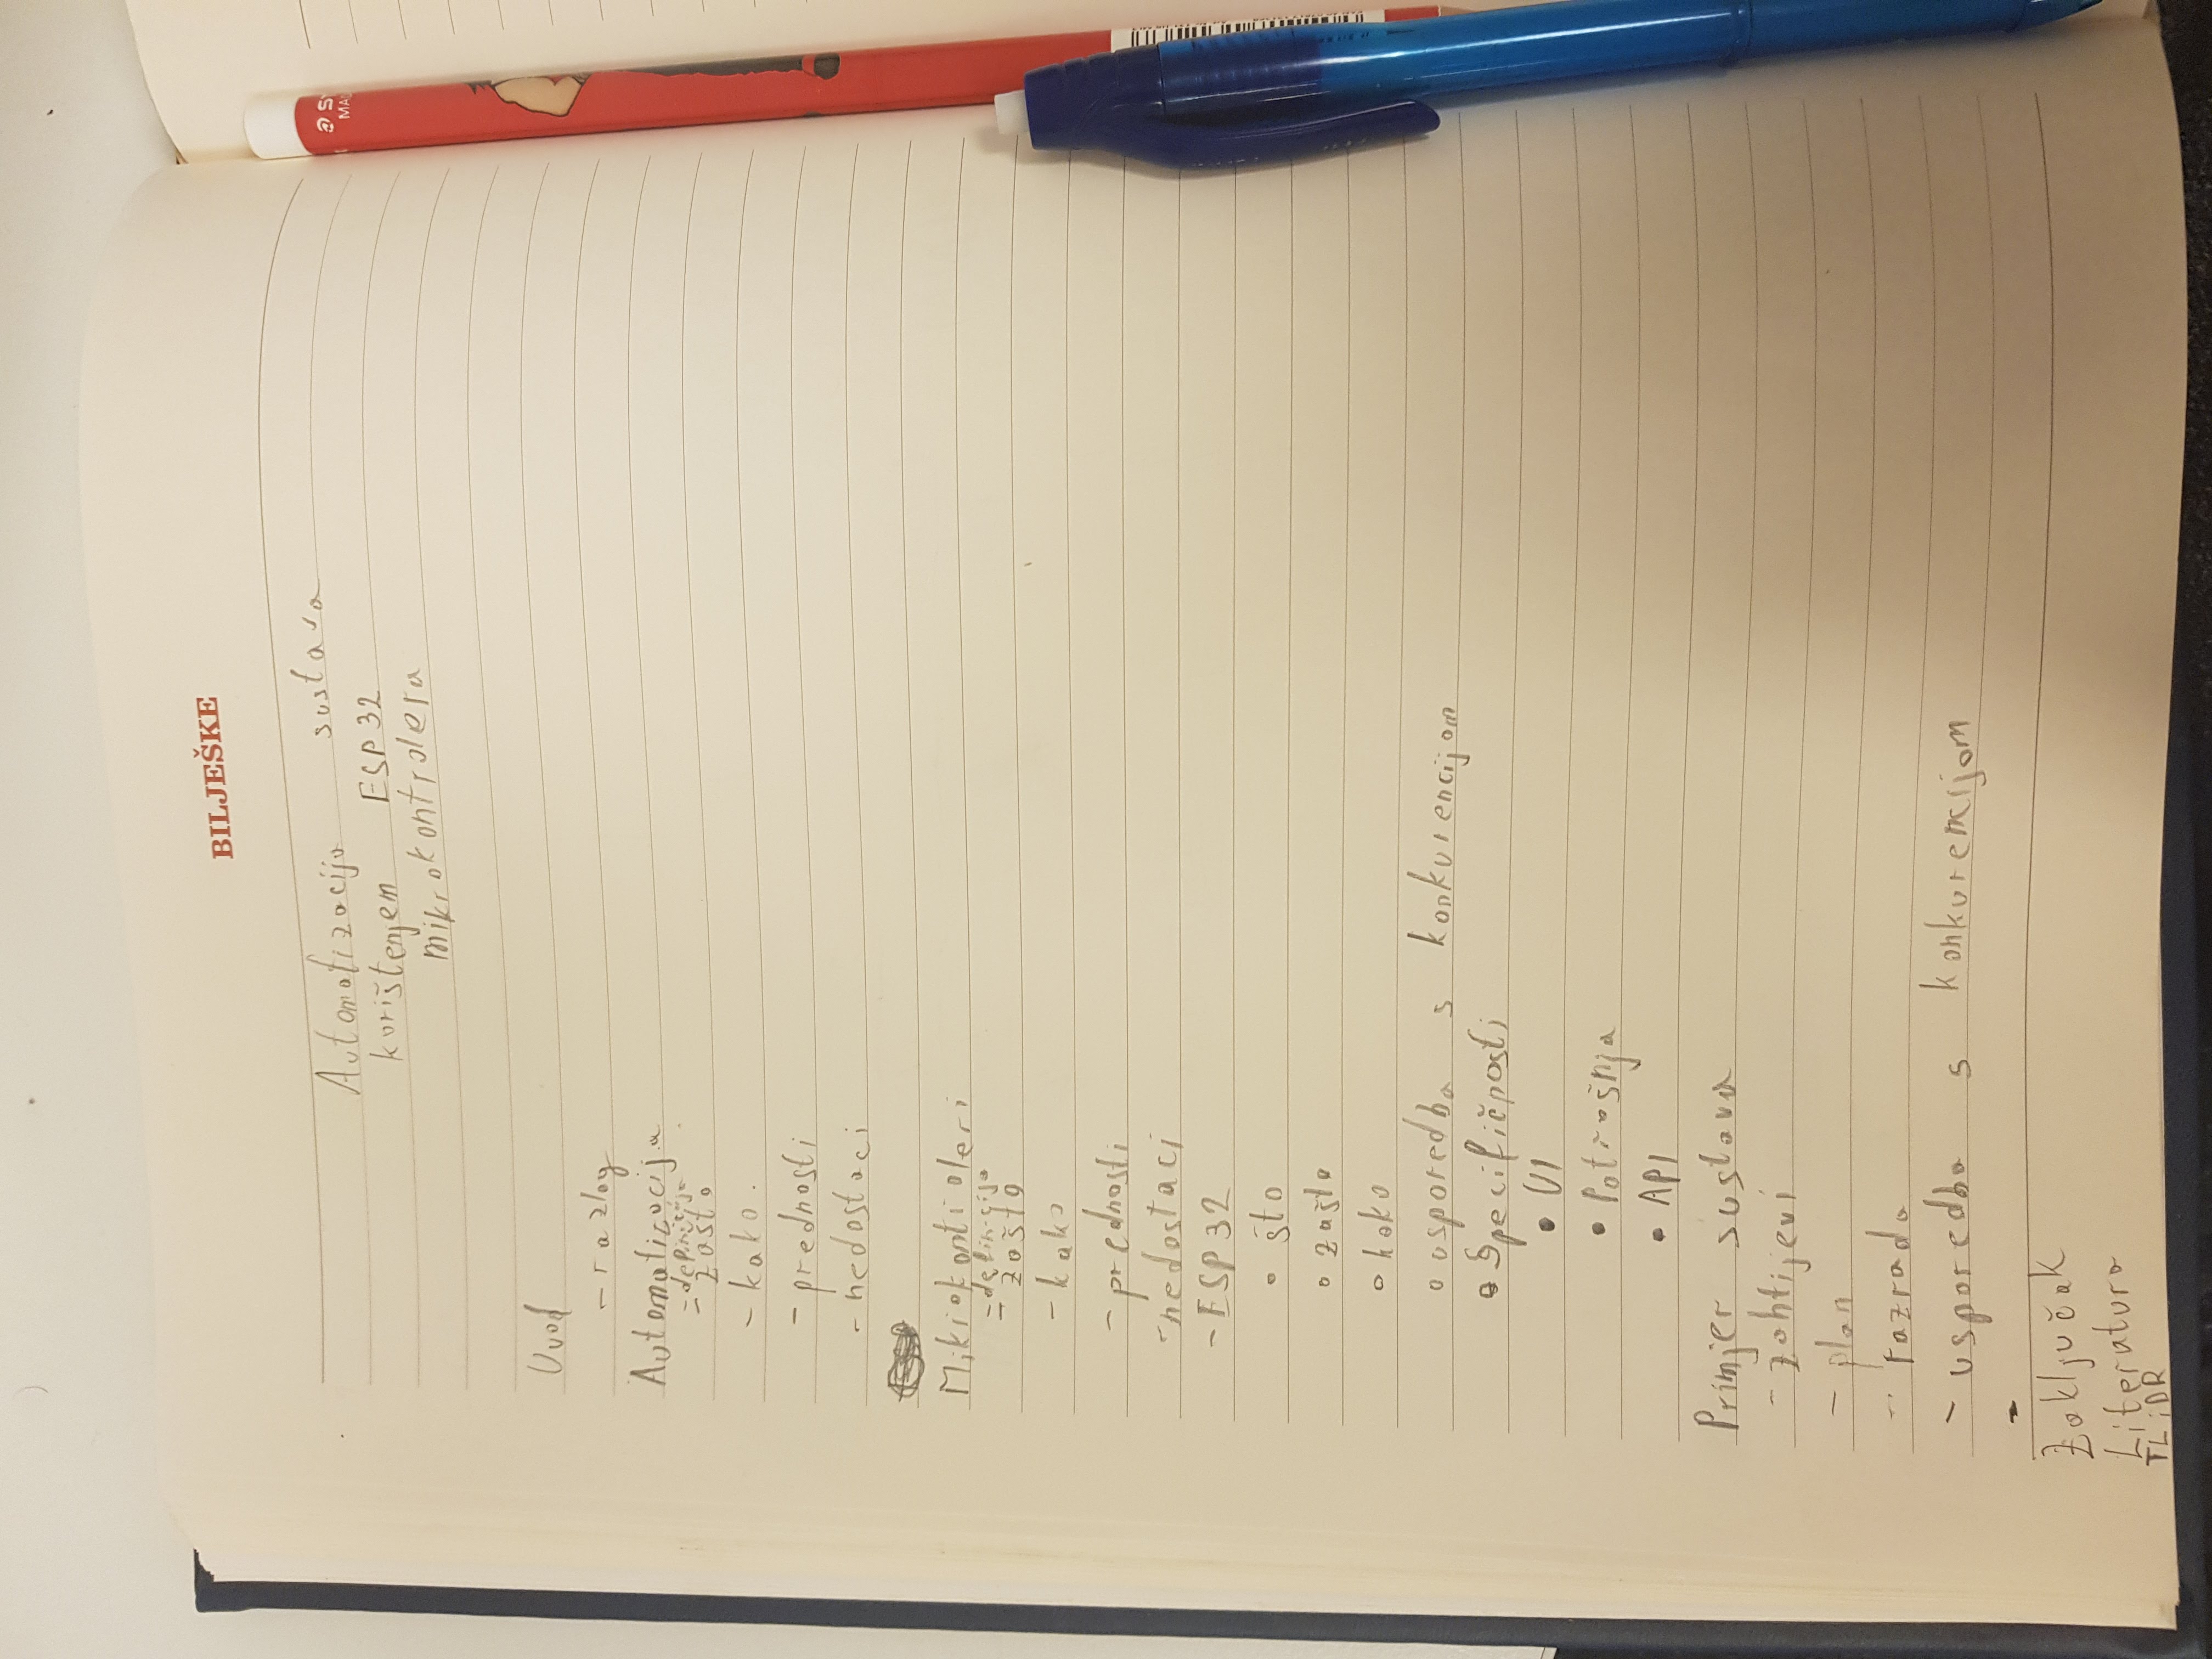 BILJEŠKE
Automatizacija sustava
korištenjem ESP32
mikrokontrolera
Uvod
- razlog
Automatizacija
- definicija
- zašto
- kako.
- prednosti
- nedostaci
Mikrokontroleri
- definicija
- zašto
- kako
- prednosti
- nedostaci
- ESP32
• što
• zašto
• kako
• usporedba s konkurencijom
• Specifičnosti
• UI
• Potrošnja
• API
Primjer sustava
- zahtijevi
- plan
- razrada
- usporedba s konkurencijom
-
Zaključak
Literatura
TL;DR